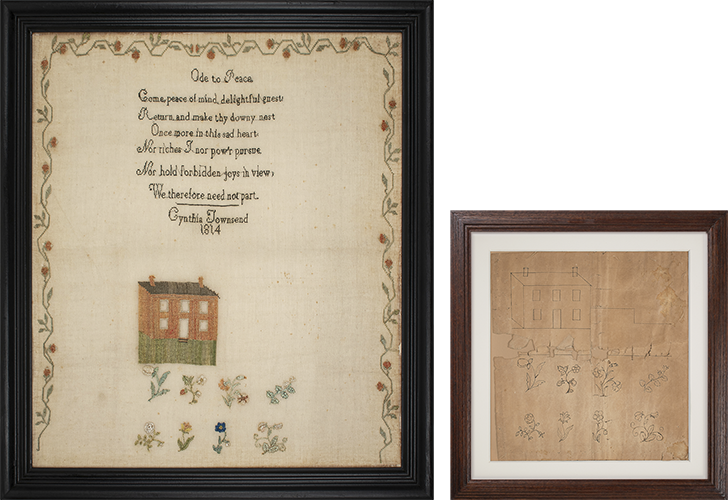 Ode to Peace
Come, peace of mind, delightful guest;
Return, and make thy downy nest
Once more in this sad heart:
Nor riches I nor pow'r pursue
Nor hold forbidden joys in view;
We therefore need not part.
Cynthia Townsend
1814